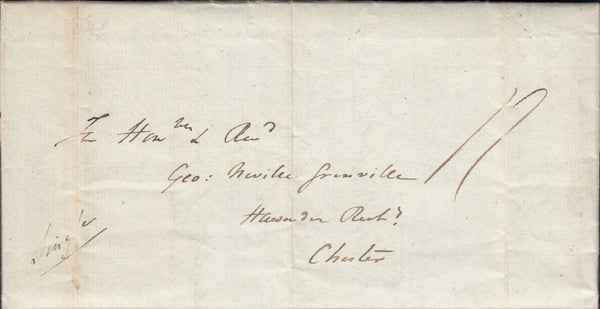 The Hon^ble & Rev^d
Geo: Neville Grenville
Hawarden Rect^y
Chester
Single
11